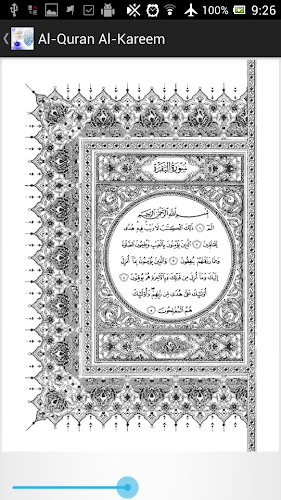 100%
9:26
Al-Quran Al-Kareem
سورة البقرة
بسم الله الرحمن الرحيم
الم ١ ذلك الكتب لا ريب فيه هدى
للمتقين ٢ الذين يؤمنون بالغيب ويقيمون الصلوة
ومما رزقنهم ينفقون ٣ والذين يؤمنون بما أنزل
إليك وما أنزل من قبلك وبالآخرة هم يوقنون ٤
أولئك على هدى من ربهم وأولئك
هم المفلحون ٥